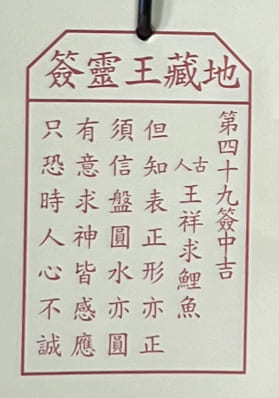 地藏王靈簽
第四十九簽中吉
古人王祥求鯉魚
但知表正形亦正
須信盤圓水亦圓
有意求神皆感應
只恐時人心不誠